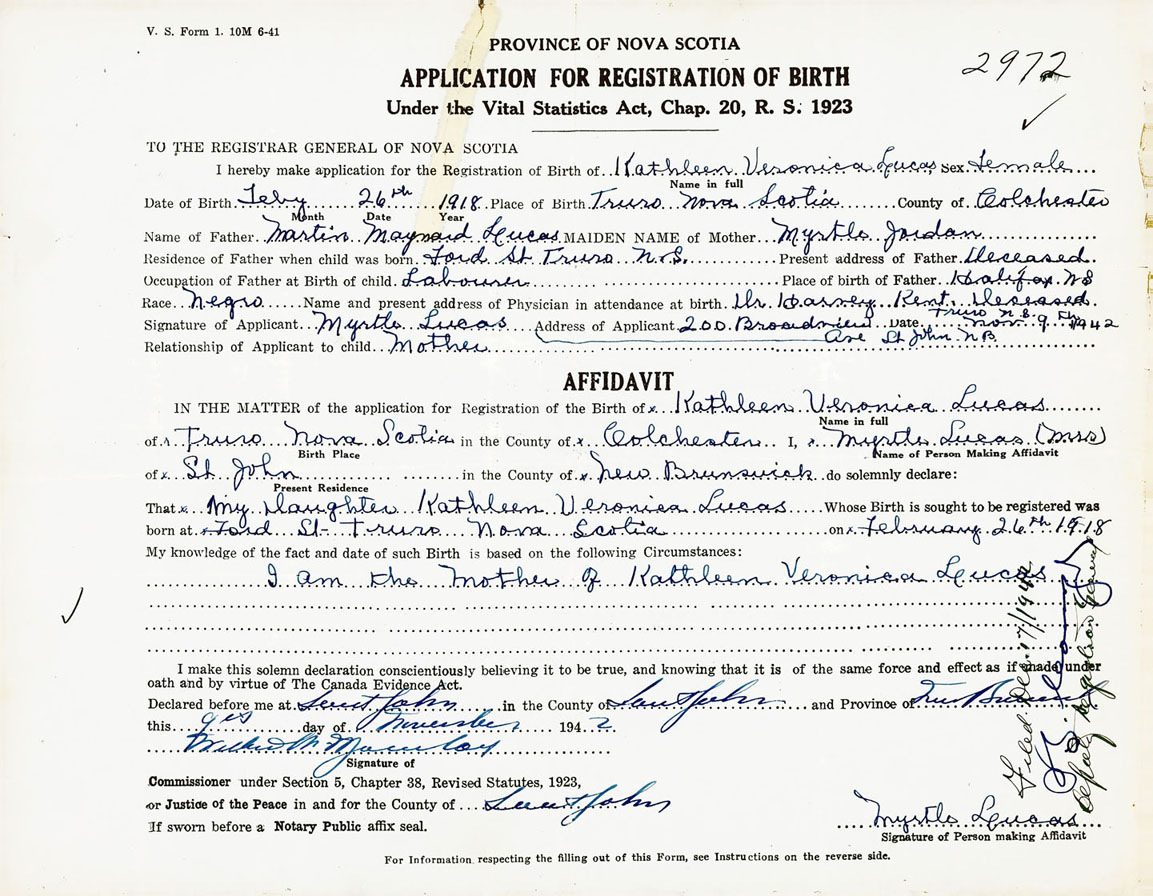 V. S. Form 1. 10M 6-41
PROVINCE OF NOVA SCOTIA
2972
APPLICATION FOR REGISTRATION OF BIRTH
Under the Vital Statistics Act, Chap. 20, R. S. 1923
TO THE REGISTRAR GENERAL OF NOVA SCOTIA
I hereby make application for the Registration of Birth of Kathleen Veronica Lucas Sex Female
Name in full
Date of Birth Feby 26th 1918 Place of Birth Truro Nova Scotia County of Colchester
Month Date Year
Name of Father Martin Maynard Lucas MAIDEN NAME of Mother Myrtle Jordan
Residence of Father when child was born Ford St Truro N.S. Present address of Father Deceased
Occupation of Father at Birth of child Labourer Place of birth of Father Halifax NS
Race Negro Name and present address of Physician in attendance at birth Dr. Harvey Kent. Deceased
Truro N.S.
Signature of Applicant Myrtle Lucas Address of Applicant 200 Broadview Date Nov. 9th 1942
Ave St John N.B.
Relationship of Applicant to child Mother
AFFIDAVIT
IN THE MATTER of the application for Registration of the Birth of x Kathleen Veronica Lucas
Name in full
of Truro Nova Scotia in the County of x Colchester I, Myrtle Lucas (Mrs)
Birth Place Name of Person Making Affidavit
of x St John in the County of x New Brunswick do solemnly declare:
Present Residence
That x My Daughter Kathleen Veronica Lucas Whose Birth is sought to be registered was
born at x Ford St Truro Nova Scotia on x February 26th 1918
My knowledge of the fact and date of such Birth is based on the following Circumstances:
I am the mother of Kathleen Veronica Lucas
I make this solemn declaration conscientiously believing it to be true, and knowing that it is of the same force and effect as if made under
oath and by virtue of The Canada Evidence Act.
Declared before me at Saint John in the County of Saint John and Province of New Brunswick
this 9th day of November 1942
Signature of
Commissioner under Section 5, Chapter 38, Revised Statutes, 1923,
or Justice of the Peace in and for the County of Saint John
If sworn before a Notary Public affix seal.
Myrtle Lucas
Signature of Person making Affidavit
For Information respecting the filling out of this Form, see Instructions on the reverse side.
Filed Dec. 17/1942
Deputy Registrar General